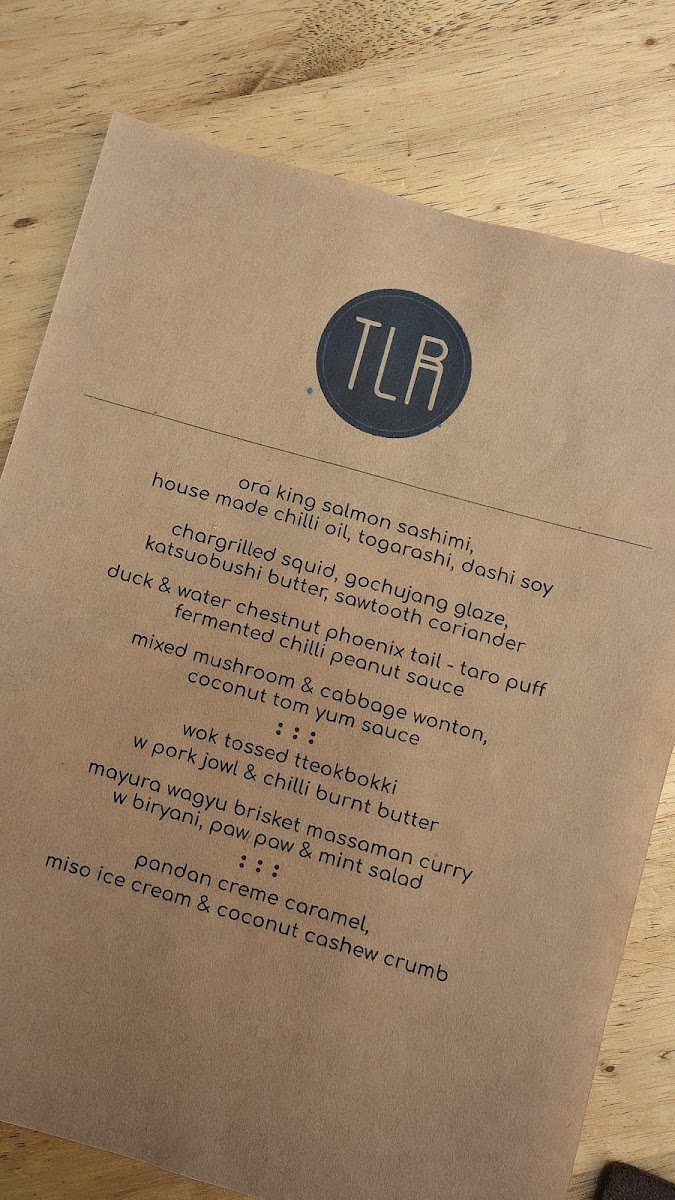 TLR
ora king salmon sashimi,
house made chilli oil, togarashi, dashi soy
chargrilled squid, gochujang glaze,
katsuobushi butter, sawtooth coriander
duck & water chestnut phoenix tail - taro puff
fermented chilli peanut sauce
mixed mushroom & cabbage wonton,
coconut tom yum sauce
wok tossed tteokbokki
w pork jowl & chilli burnt butter
mayura wagyu brisket massaman curry
w biryani, paw paw & mint salad
pandan creme caramel,
miso ice cream & coconut cashew crumb